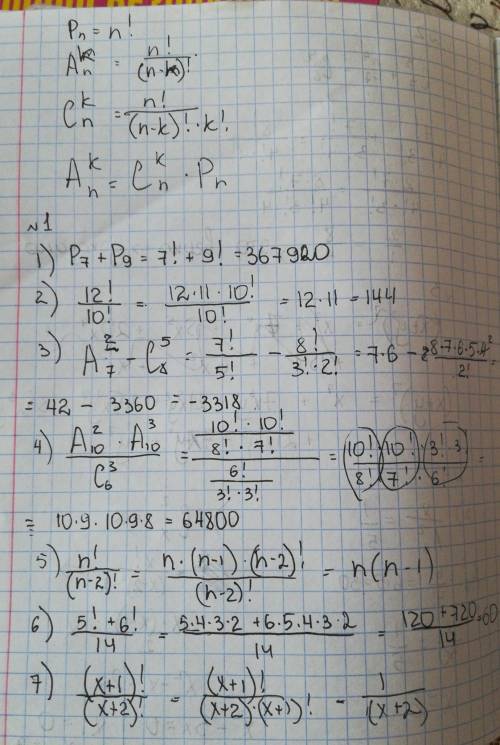 Pₙ = n!
Aₙᵏ = n! / (n-k)!
Cₙᵏ = n! / (n-k)!·k!
Aₙᵏ = Cₙᵏ · Pₙ
№1
1) P₇ + P₉ = 7! + 9! = 367920
2) 12! / 10! = 12·11·10! / 10! = 12·11 = 144
3) A₇² - C₈⁵ = 7! / 5! - 8! / 3!·2! = 7·6 - 8·7·6·5·4² / 2! =
= 42 - 3360 = -3318
4) A₁₀² · A₁₀³ / C₆³ = 10! · 10! / 8! · 7! / 6! / 3!·3! = 10! / 8! · 10! / 7! · 3!·3! / 6! =
= 10·9·10·9·8 = 64800
5) n! / (n-2)! = n·(n-1)·(n-2)! / (n-2)! = n(n-1)
6) 5! + 6! / 14 = 5·4·3·2 + 6·5·4·3·2 / 14 = 120 + 720 / 14 = 60
7) (x+1)! / (x+2)! = (x+1)! / (x+2)·(x+1)! - 1 / (x+2)